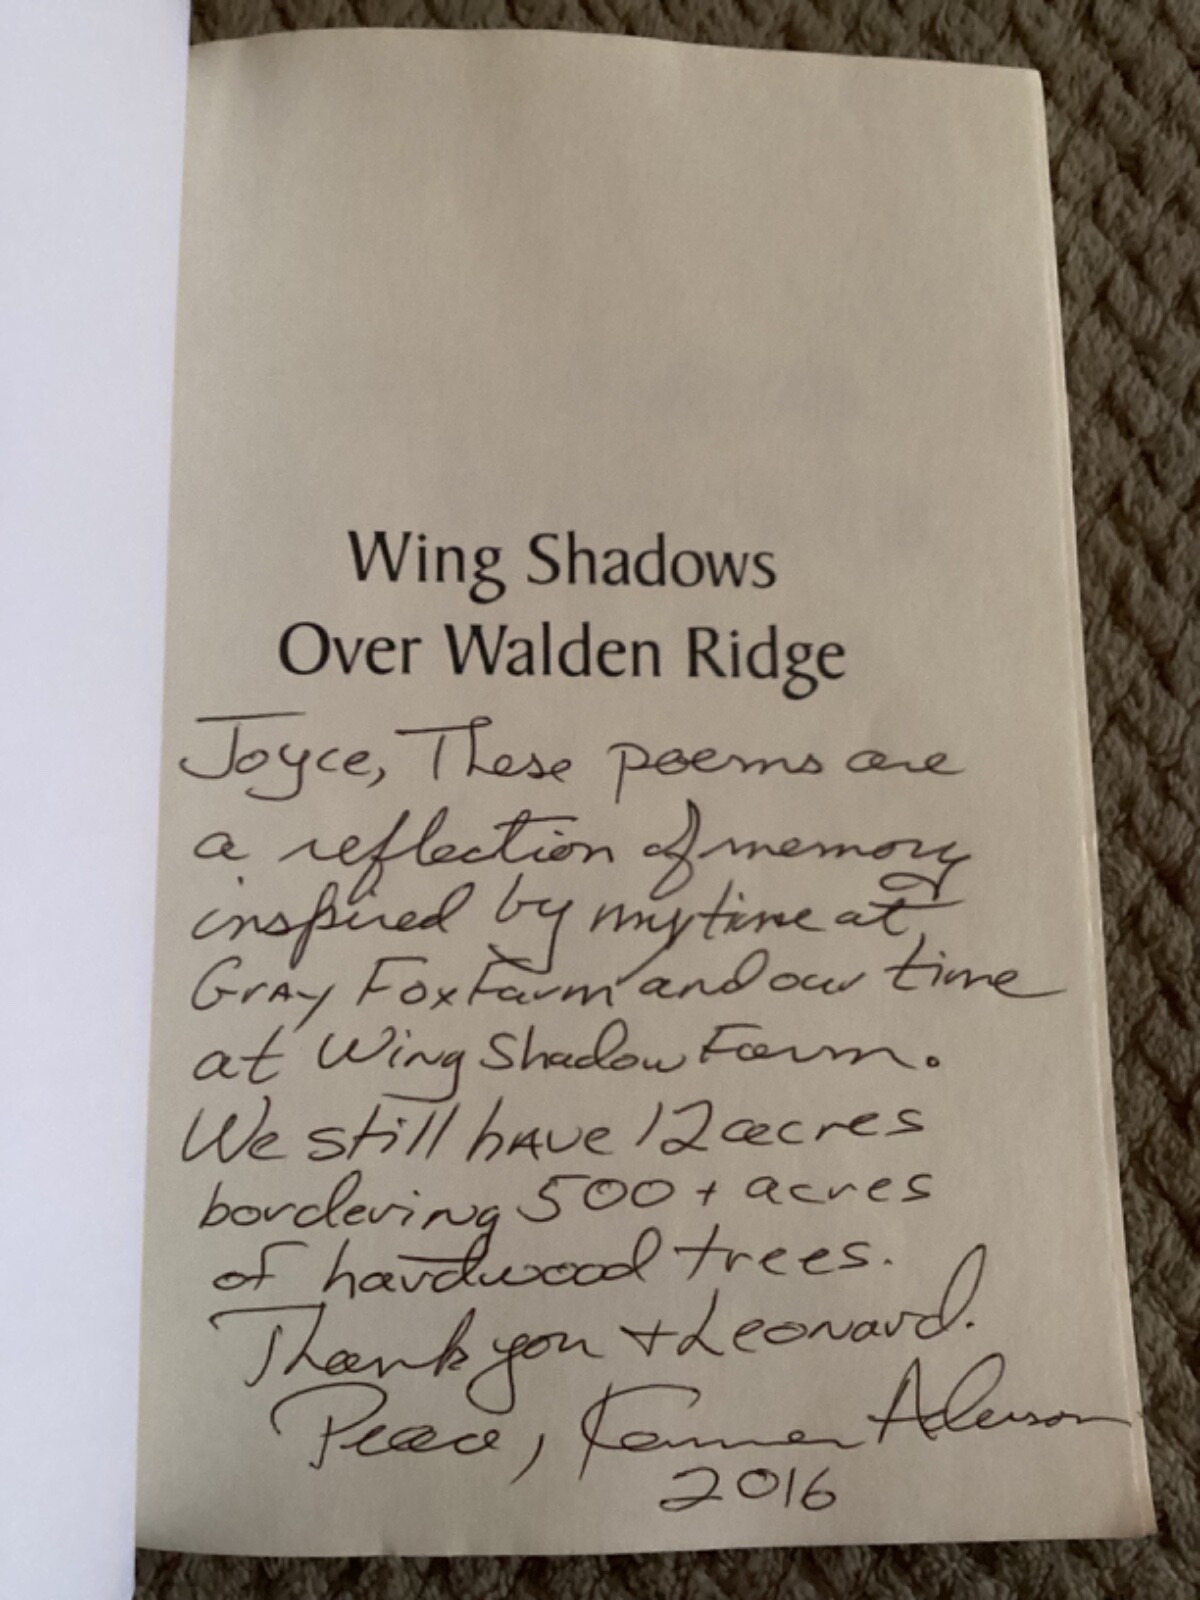 Wing Shadows
Over Walden Ridge
Joyce, These poems are
a reflection of memory
inspired by my time at
Gray Fox Farm and our time
at Wing Shadow Farm.
We still have 12 acres
bordering 500+ acres
of hardwood trees.
Thank you + Leonard.
Peace,
2016